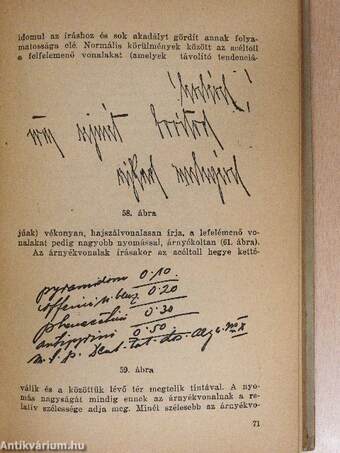 idomul az íráshoz és sok akadályt gördít annak folya-
matossága elé. Normális körülmények között az acéltoll
a felfelemenő vonalakat (amelyek távolító tendenciá-
58. ábra
júak) vékonyan, hajszálvonalasan írja, a lefelémenő vo-
nalakat pedig nagyobb nyomással, árnyékoltan (61. ábra).
Az árnyékvonalak írásakor az acéltoll hegye ketté-
pyramidom 0.10
0.20
phenacetini 0.30
antipyrini 0.50
59. ábra
válik és a közöttük lévő tér megtelik tintával. A nyo-
más nagyságát mindig ennek az árnyékvonalnak a re-
latív szélessége adja meg. Minél szélesebb az árnyékvo-
71
Antikvárium.hu